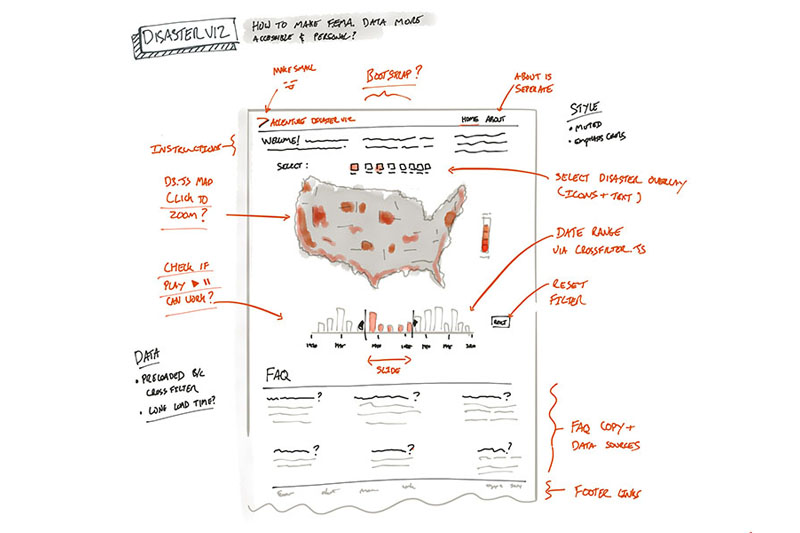 DISASTER VIZ
HOW TO MAKE FEMA DATA MORE
ACCESSIBLE & PERSONAL?
MAKE SMALL
BOOTSTRAP?
ABOUT IS
SEPERATE
STYLE
• MUTED
>ACCENTURE DISASTER VIZ
HOME ABOUT
WELCOME!
INSTRUCTIONS
SELECT:
SELECT DISASTER OVERLAY
(ICONS + TEXT)
D3.JS MAP
CLICK TO
ZOOM?
DATE RANGE
VIA CROSSFILTER.JS
CHECK IF
PLAY
CAN WORK?
RESET
FILTER
RESET
SLIDE
DATA
• PRELOADED B/C
CROSSFILTER
• LONG LOAD TIME?
FAQ
? ? ?
? ? ?
FAQ COPY +
DATA SOURCES
FOOTER LINKS